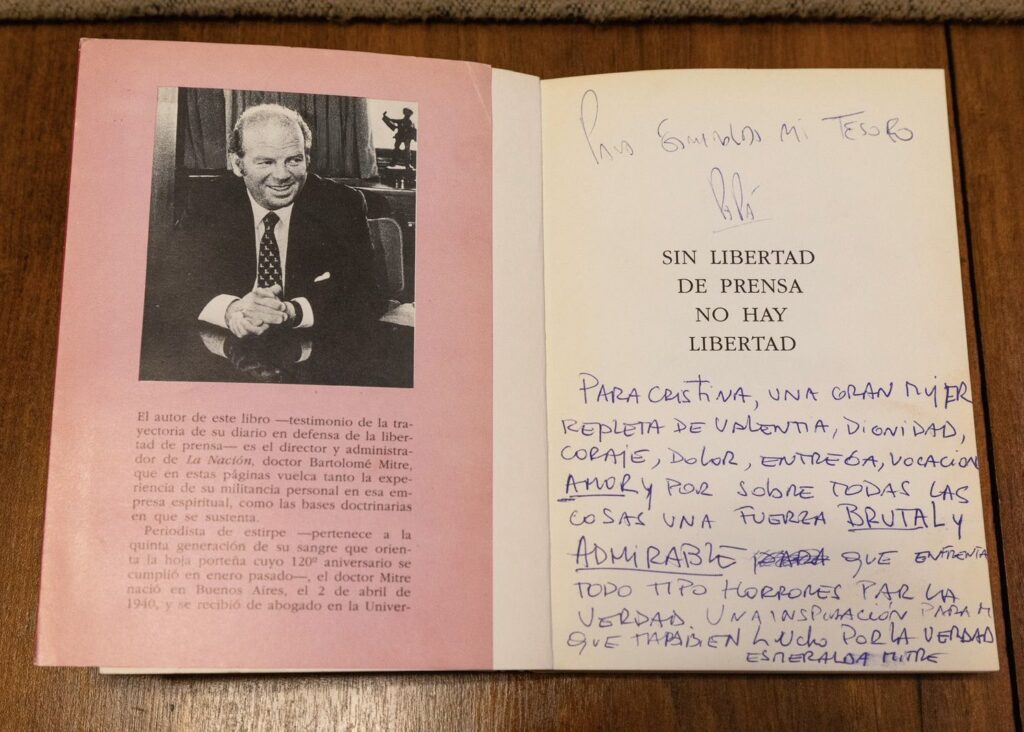 El autor de este libro —testimonio de la tra-
yectoria de su diario en defensa de la liber-
tad de prensa— es el director y administra-
dor de La Nación, doctor Bartolomé Mitre,
que en estas páginas vuelca tanto la expe-
riencia de su militancia personal en esa em-
presa espiritual, como las bases doctrinarias
en que se sustenta.
Periodista de estirpe —pertenece a la
quinta generación de su sangre que orien-
ta la hoja porteña cuyo 120º aniversario se
cumplió en enero pasado—, el doctor Mitre
nació en Buenos Aires, el 2 de abril de
1940, y se recibió de abogado en la Univer-
Para Esmeralda mi Tesoro
Papá
SIN LIBERTAD
DE PRENSA
NO HAY
LIBERTAD
PARA CRISTINA, UNA GRAN MUJER
REPLETA DE VALENTIA, DIGNIDAD,
CORAJE, DOLOR, ENTREGA, VOCACION
AMOR y POR SOBRE TODAS LAS
COSAS UNA FUERZA BRUTAL y
ADMIRABLE QUE ENFRENTA
TODO TIPO HORRORES POR LA
VERDAD. UNA INSPIRACIÓN PARA MI
QUE TAMBIEN LUCHO POR LA VERDAD
ESMERALDA MITRE